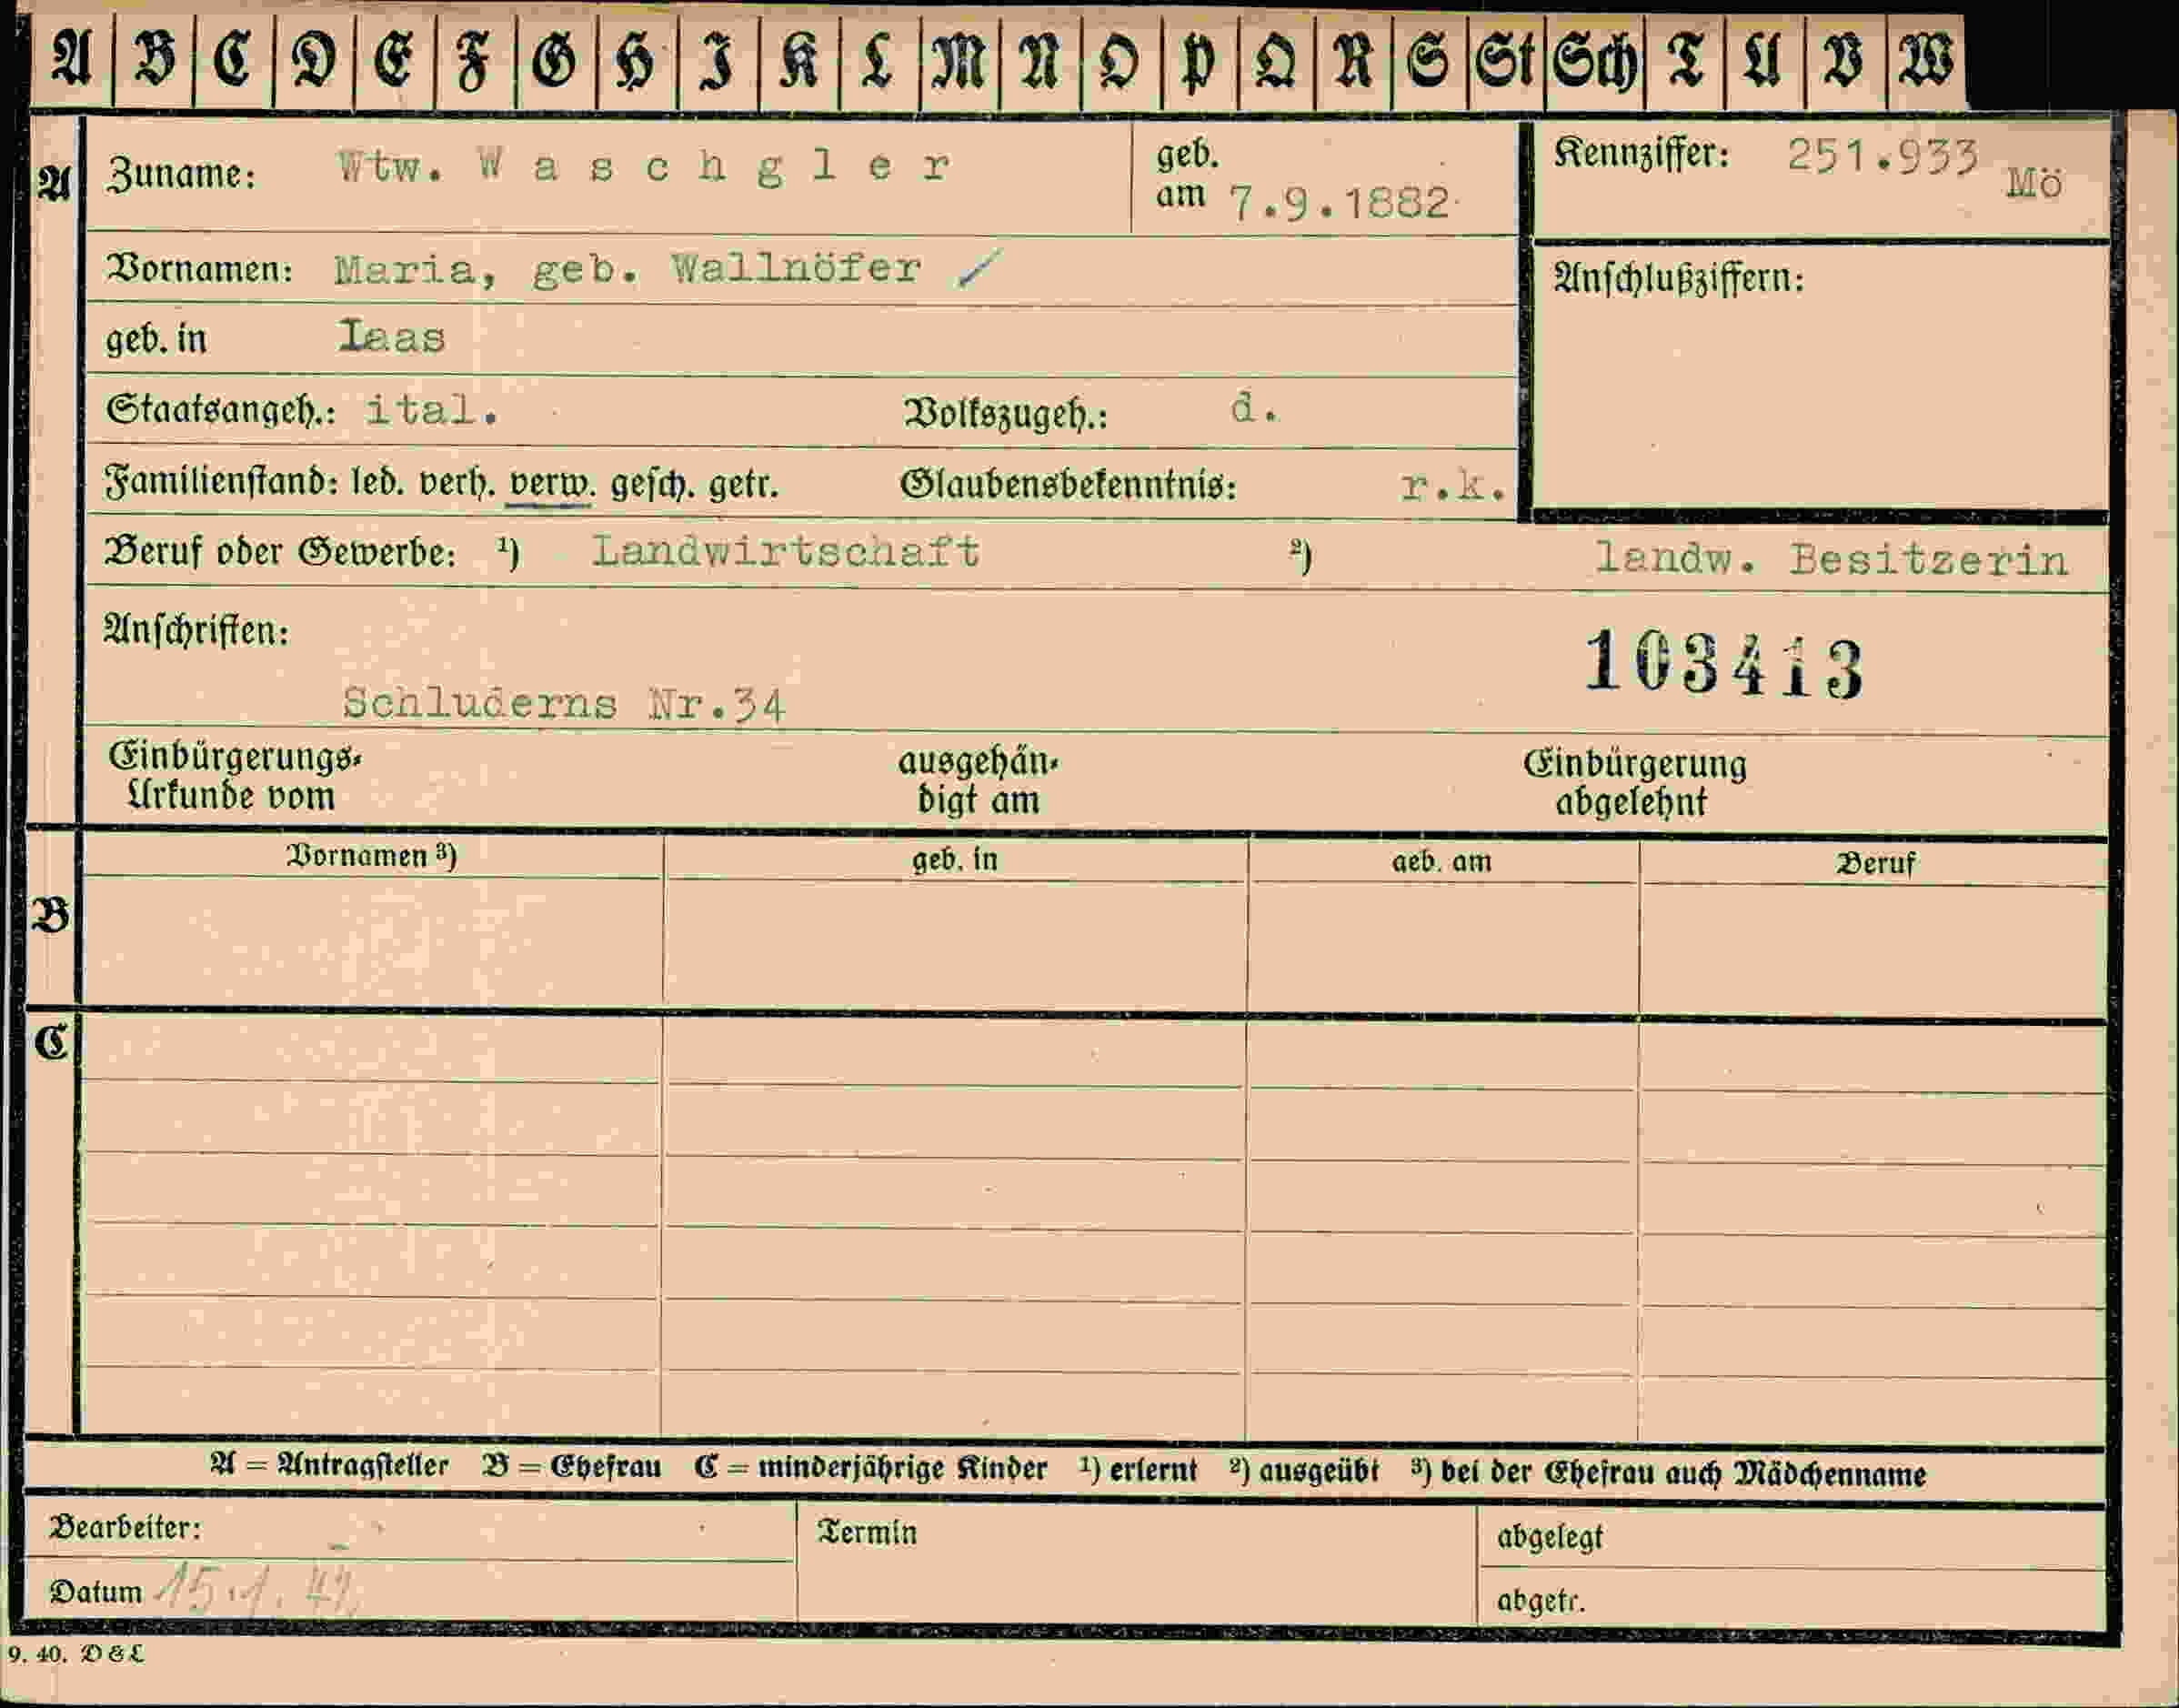 A B C D E F G H I K L M N O P Q R S St Sch T U V W
A Zuname: Wtw. Waschgler geb. am 7.9.1882 Kennziffer: 251.933 Mö
Vornamen: Maria, geb. Wallnöfer / Anschlußziffern:
geb. in Laas
Staatsangeh.: ital. Volkszugeh.: d.
Familienstand: led. verh. verw. gesch. getr. Glaubensbekenntnis: r.k.
Beruf oder Gewerbe: ¹) Landwirtschaft ²) landw. Besitzerin
Anschriften:
103413
Schluderns Nr.34
Einbürgerungs-Urkunde vom ausgehändigt am Einbürgerung abgelehnt
Vornamen ³) geb. in geb. am Beruf
B
C
A = Antragsteller B = Ehefrau C = minderjährige Kinder ¹) erlernt ²) ausgeübt ³) bei der Ehefrau auch Mädchenname
Bearbeiter: Termin abgelegt
Datum 15.1. abgetr.
9. 40. D & L